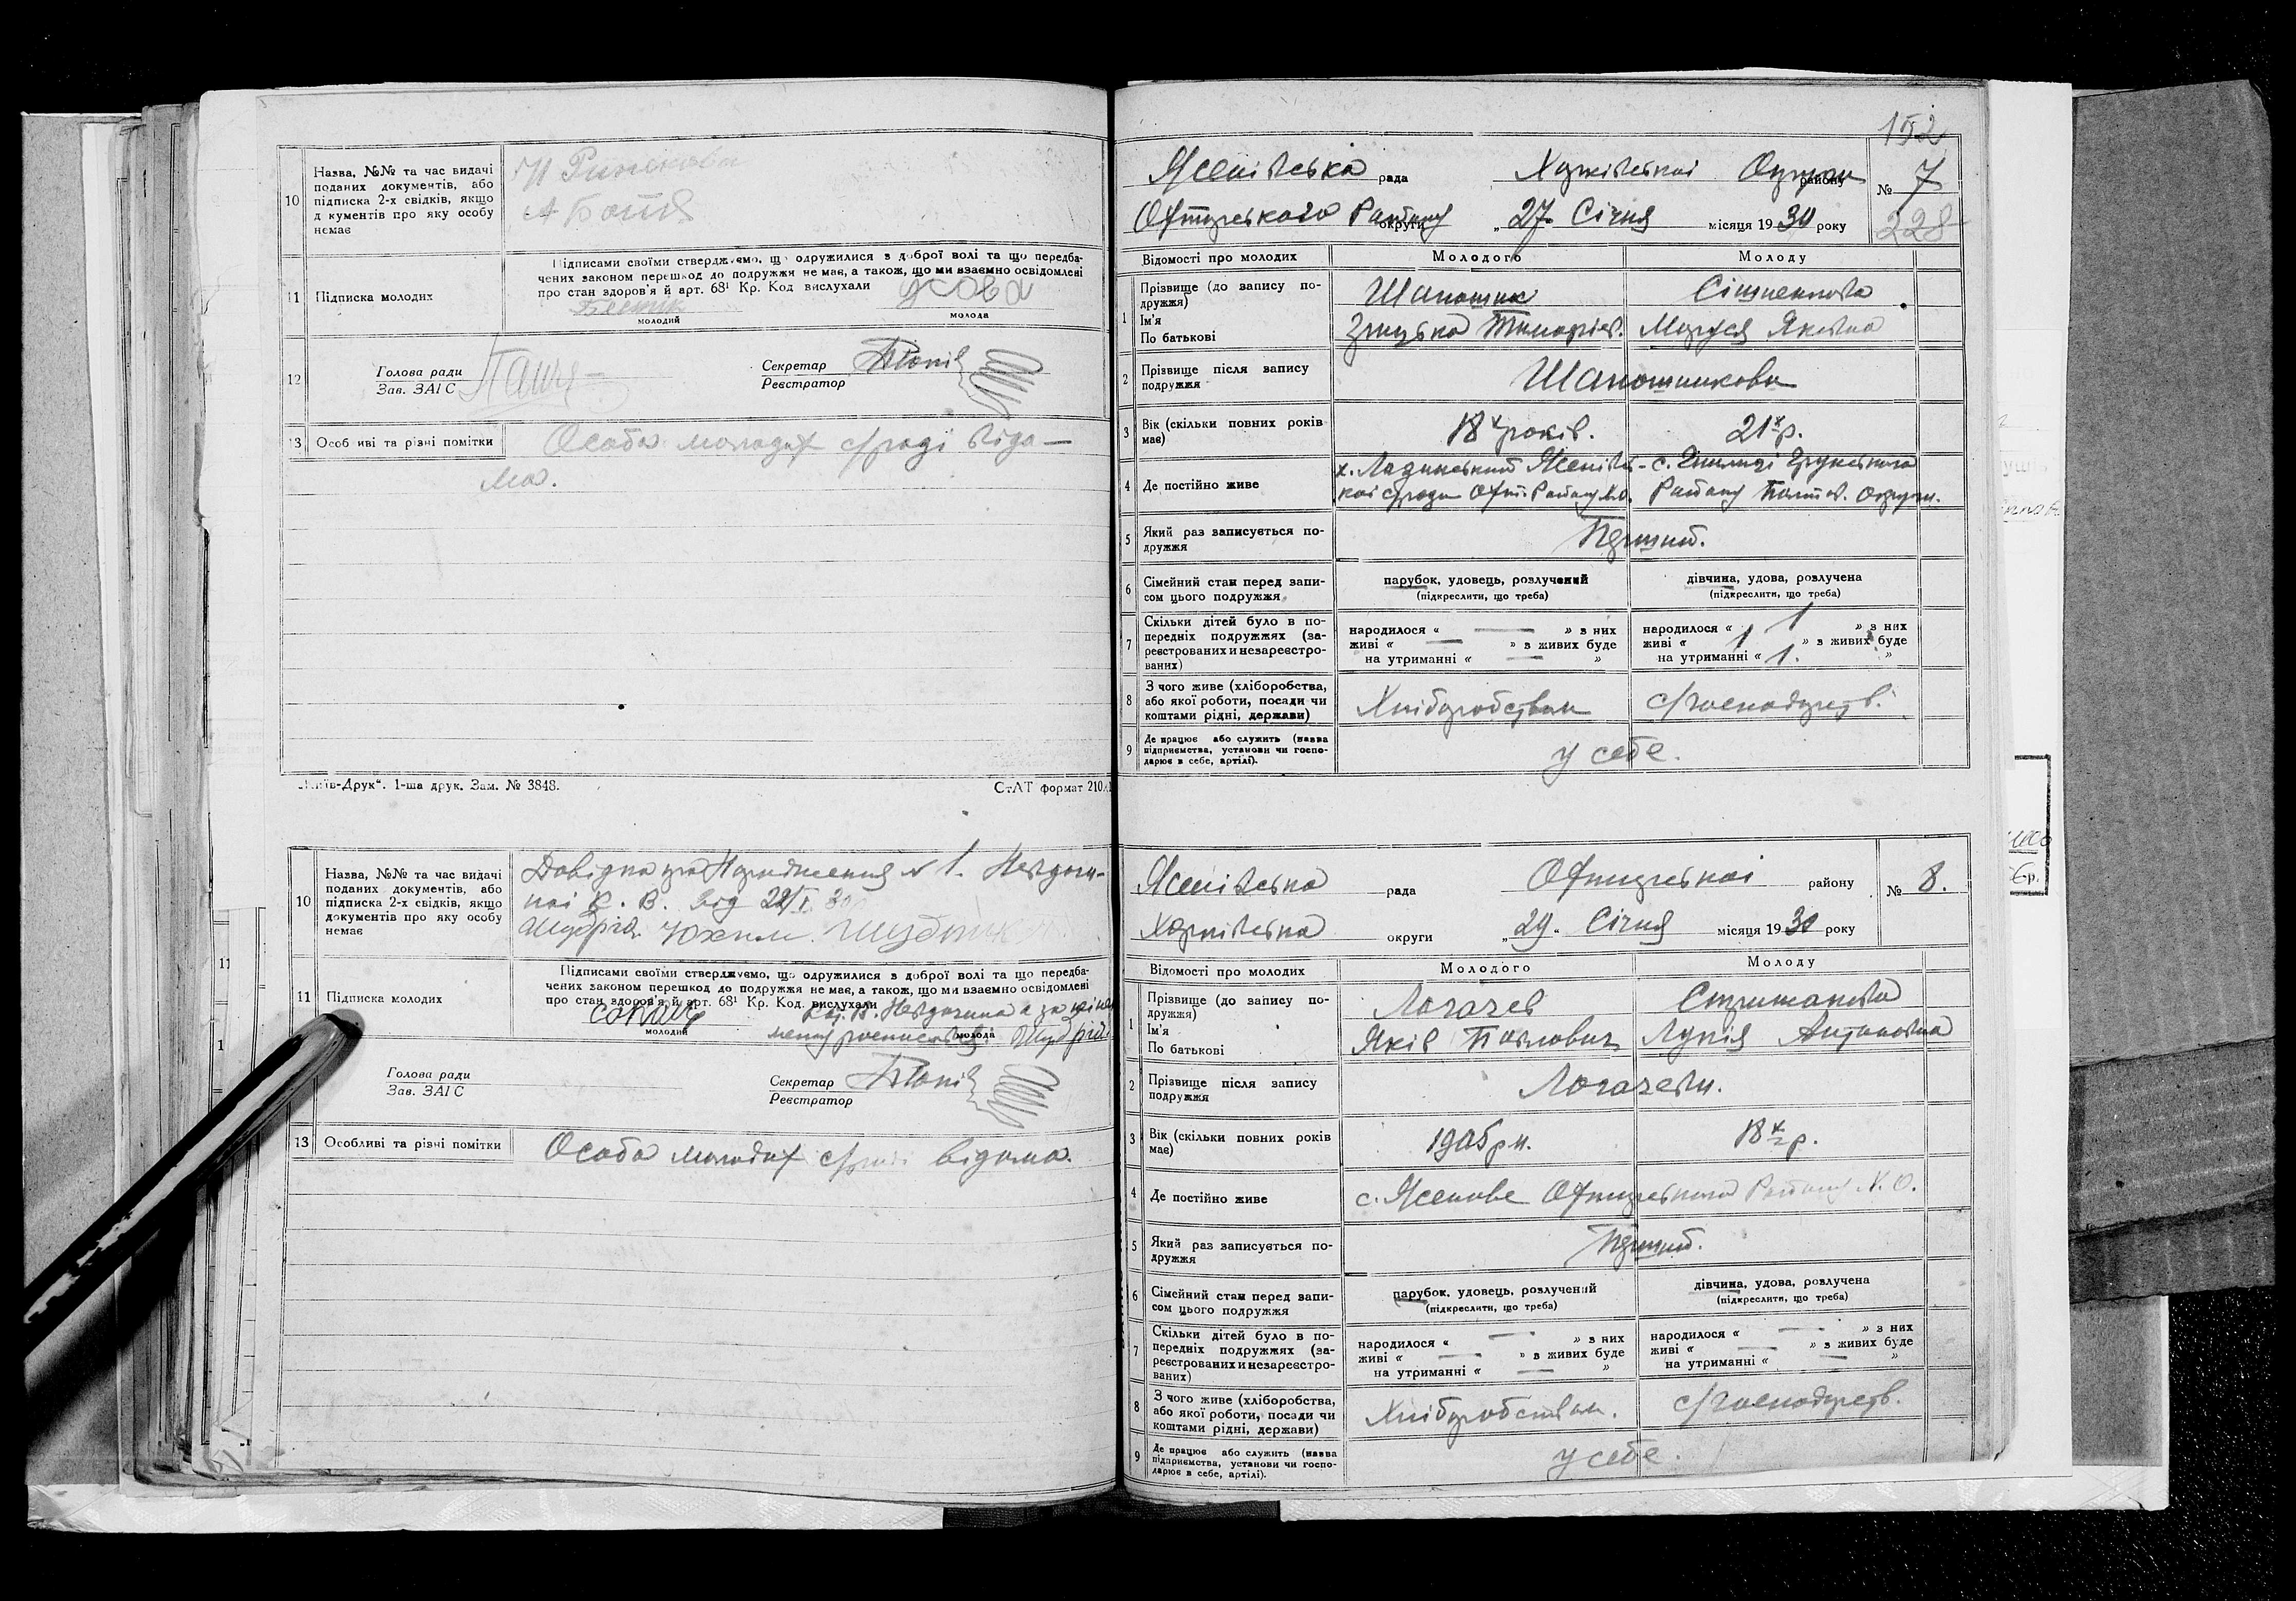 10
Назва, №№ та час видачі
поданих документів, або
підписка 2-х свідків, якщо
д кументів про яку особу
немає
11 Підписка молодих
Підписами своїми стверджуємо, що одружилися з доброї волі та що передба-
чених законом перешкод до подружжя не має, а також, що ми взаємно освідомлені
про стан здоров'я й арт. 68¹ Кр. Код вислухали
молодий
молода
12
Голова ради
Зав. ЗАГС
Секретар
Реєстратор
13 Особ иві та різні помітки
Особа молодих с/раді відо-
ма.
„Київ-Друк“. 1-ша друк. Зам. № 3848.
СтАТ формат 210
10
Назва, №№ та час видачі
поданих документів, або
підписка 2-х свідків, якщо
документів про яку особу
немає
Довідка про Народження № 1.
від 22/I 30
Юхим
11 Підписка молодих
Підписами своїми стверджуємо, що одружилися з доброї волі та що передба-
чених законом перешкод до подружжя не має, а також, що ми взаємно освідомлені
про стан здоров'я й арт. 68¹ Кр. Код. вислухали
молодий
молода
Голова ради
Зав. ЗАГС
Секретар
Реєстратор
13 Особливі та різні помітки
Особа молодих с/раді відома.
152
Ясенівська рада Харківської Округи району № 7
Охтирського Району округи „27“ Січня місяця 1930 року
228
Відомості про молодих Молодого Молоду
1
Прізвище (до запису по-
дружжя)
Ім'я
По батькові
Маруся Яківна
2
Прізвище після запису
подружжя
Шапошникови
3
Вік (скільки повних років
має)
18 років. 21 р.
4 Де постійно живе
Району Полтав. Округи.
5
Який раз записується по-
дружжя
Перший.
6
Сімейний стан перед запи-
сом цього подружжя
парубок, удовець, розлучений
(підкреслити, що треба)
дівчина, удова, розлучена
(підкреслити, що треба)
7
Скільки дітей було в по-
передніх подружжях (за-
реєстрованих и незареєстро-
ваних)
народилося « — » з них
живі « — » в живих буде
на утриманні « — »
народилося « 1 » з них
живі « 1 » з живих буде
на утриманні « 1. »
8
З чого живе (хліборобства,
або якої роботи, посади чи
коштами рідні, держави)
Хліборобством с/господарств.
9
Де працює або служить (назва
підприємства, установи чи госпо-
дарює в себе, артілі).
у себе.
Ясенівська рада Охтирської району № 8.
Харківська округи „29“ Січня місяця 1930 року
Відомості про молодих Молодого Молоду
1
Прізвище (до запису по-
дружжя)
Ім'я
По батькові
Логачев
Яків Павлович Антонівна
2
Прізвище після запису
подружжя
Логачеви.
3
Вік (скільки повних років
має)
1905 р н. 18 р.
4 Де постійно живе
с. Ясенове Охтирського Району Х.О.
5
Який раз записується по-
дружжя
Перший.
6
Сімейний стан перед запи-
сом цього подружжя
парубок, удовець, розлучений
(підкреслити, що треба)
дівчина, удова, розлучена
(підкреслити, що треба)
7
Скільки дітей було в по-
передніх подружжях (за-
реєстрованих и незареєстро-
ваних)
народилося « — » з них
живі « — » в живих буде
на утриманні « — »
народилося « — » з них
живі « — » з живих буде
на утриманні « — »
8
З чого живе (хліборобства,
або якої роботи, посади чи
коштами рідні, держави)
Хліборобством. с/господарств.
9
Де працює або служить (назва
підприємства, установи чи госпо-
дарює в себе, артілі).
у себе.